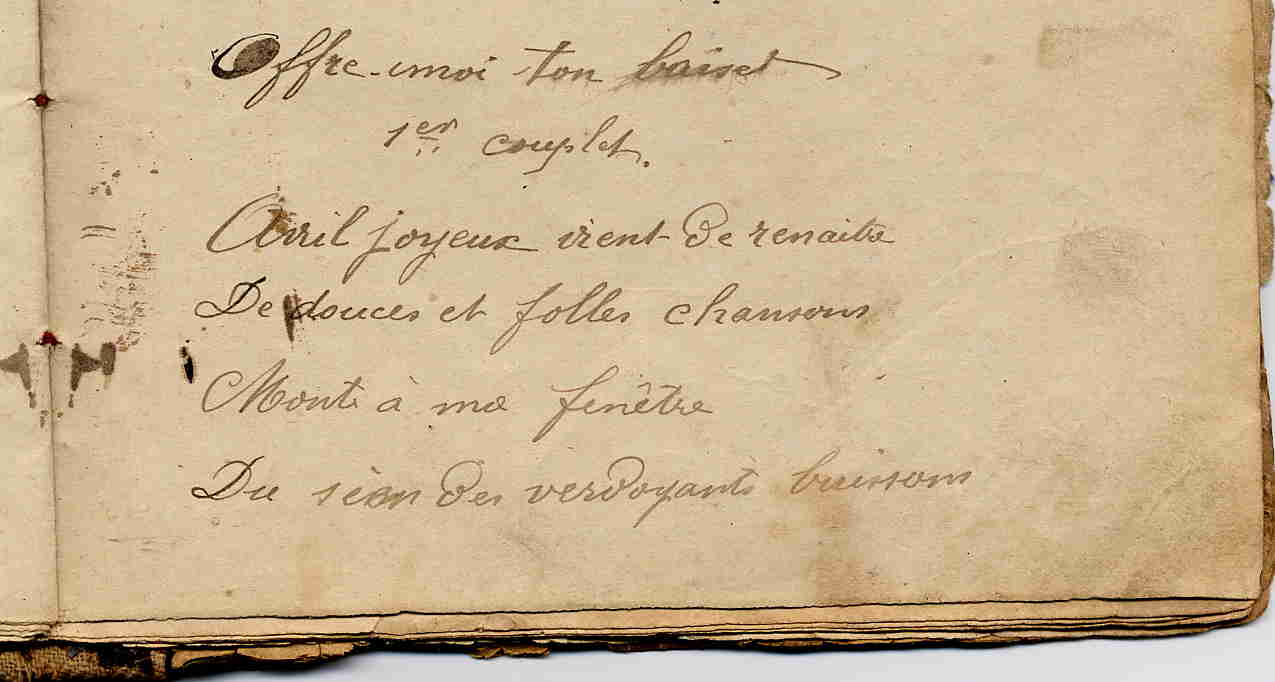 Offre-moi ton baiser
1er couplet.
Avril joyeux vient de renaitre
De douces et folles chansons
Monte à ma fenêtre
Du sein des verdoyants buissons